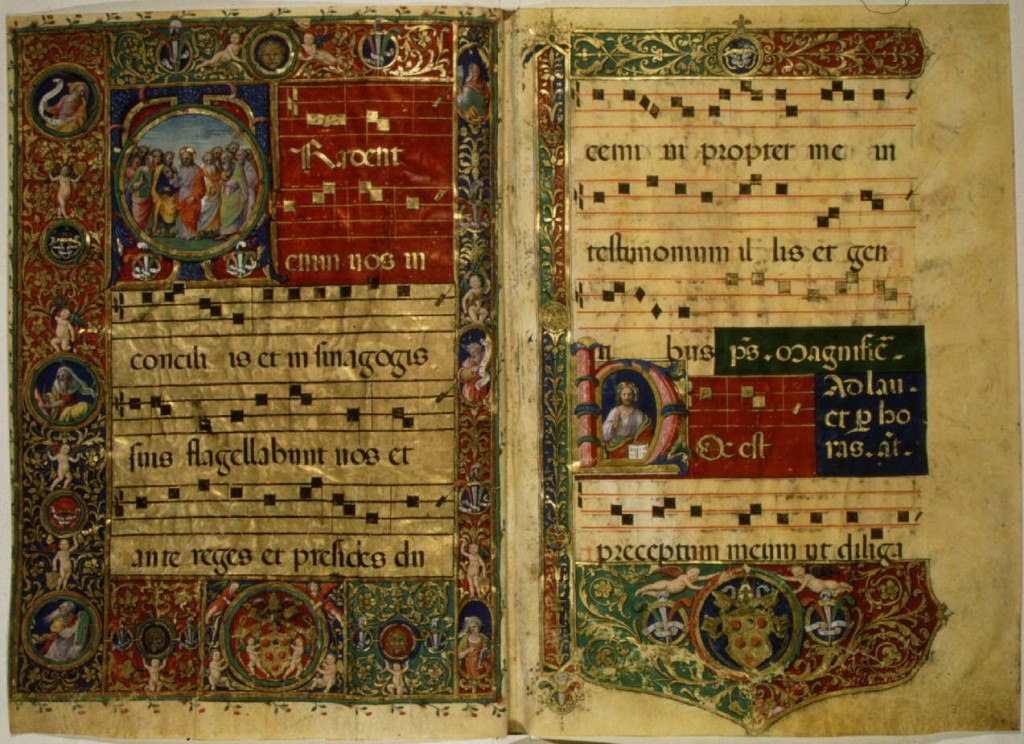 Tradent
enim uos in
concili is et in sinagogis
suis flagellabunt uos et
ante reges et presides du
cemi ni propter me in
testimonium il lis et gen
ti bus ps. Magnific̄.
Ad lau-
et p ho
ras. at.
Hoc est
preceptum meum ut diliga